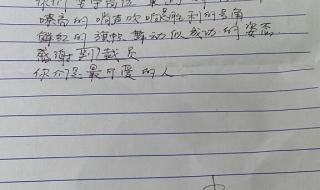 你们
嘹亮的哨声吹响胜利的号角
鲜红的旗帜舞动似成功的姿态
感谢到裁员
你们是最可爱的人